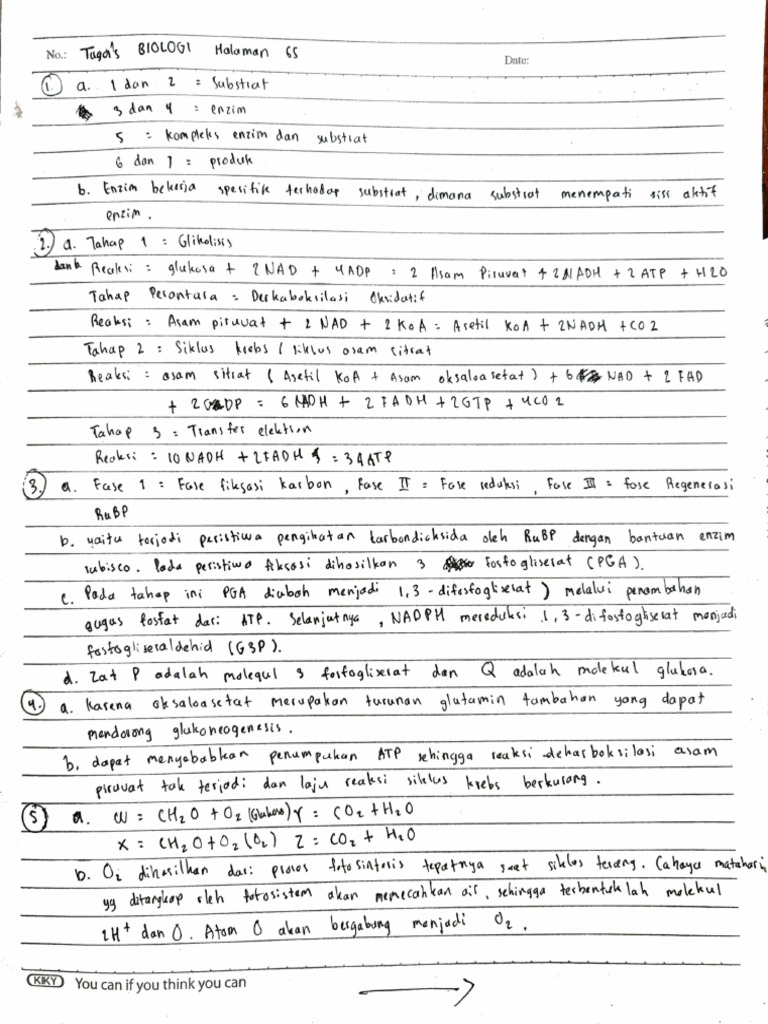 No.: Tugas BIOLOGI Halaman 65 Date:
1. a. 1 dan 2 = substrat
3 dan 4 = enzim
5 = kompleks enzim dan substrat
6 dan 7 = produk
b. Enzim bekerja spesifik terhadap substrat, dimana substrat menempati sisi aktif
enzim.
2. a. Tahap 1 = Glikolisis
dan b Reaksi = glukosa + 2 NAD + 4 ADP = 2 Asam Piruvat + 2 NADH + 2 ATP + H2O
Tahap Perantara = Derkaboksilasi Oksidatif
Reaksi = Asam piruvat + 2 NAD + 2 KoA = Asetil KoA + 2NADH + CO2
Tahap 2 = Siklus krebs / siklus asam sitrat
Reaksi = asam sitrat (Asetil KoA + Asam oksaloasetat) + 6 NAD + 2 FAD
+ 2 GDP = 6 NADH + 2 FADH + 2GTP + 4CO2
Tahap 3 = Transfer elektron
Reaksi = 10 NADH + 2FADH = 34 ATP
3. a. Fase 1 = Fase fiksasi karbon, Fase II = Fase reduksi, Fase III = fase Regenerasi
RuBP
b. yaitu terjadi peristiwa pengikatan karbondioksida oleh RuBP dengan bantuan enzim
rubisco. Pada peristiwa fiksasi dihasilkan 3 fosfogliserat (PGA).
c. Pada tahap ini PGA diubah menjadi 1,3-difosfogliserat) melalui penambahan
gugus fosfat dari ATP. Selanjutnya, NADPH mereduksi 1,3-difosfogliserat menjadi
fosfogliseraldehid (G3P).
d. Zat P adalah molequl 3 fosfogliserat dan Q adalah molekul glukosa.
4. a. Karena oksaloasetat merupakan turunan glutamin tambahan yang dapat
mendorong glukoneogenesis.
b. dapat menyebabkan penumpukan ATP sehingga reaksi dekarboksilasi asam
piruvat tak terjadi dan laju reaksi siklus krebs berkurang.
5 a. W = CH2O + O2 (Glukosa) Y = CO2 + H2O
X = CH2O + O2 (O2) Z = CO2 + H2O
b. O2 dihasilkan dari proses fotosintesis tepatnya saat siklus terang. Cahaya matahari
yg ditangkap oleh fotosistem akan memecahkan air, sehingga terbentuklah molekul
2H+ dan O. Atom O akan bergabung menjadi O2.
KIKY You can if you think you can